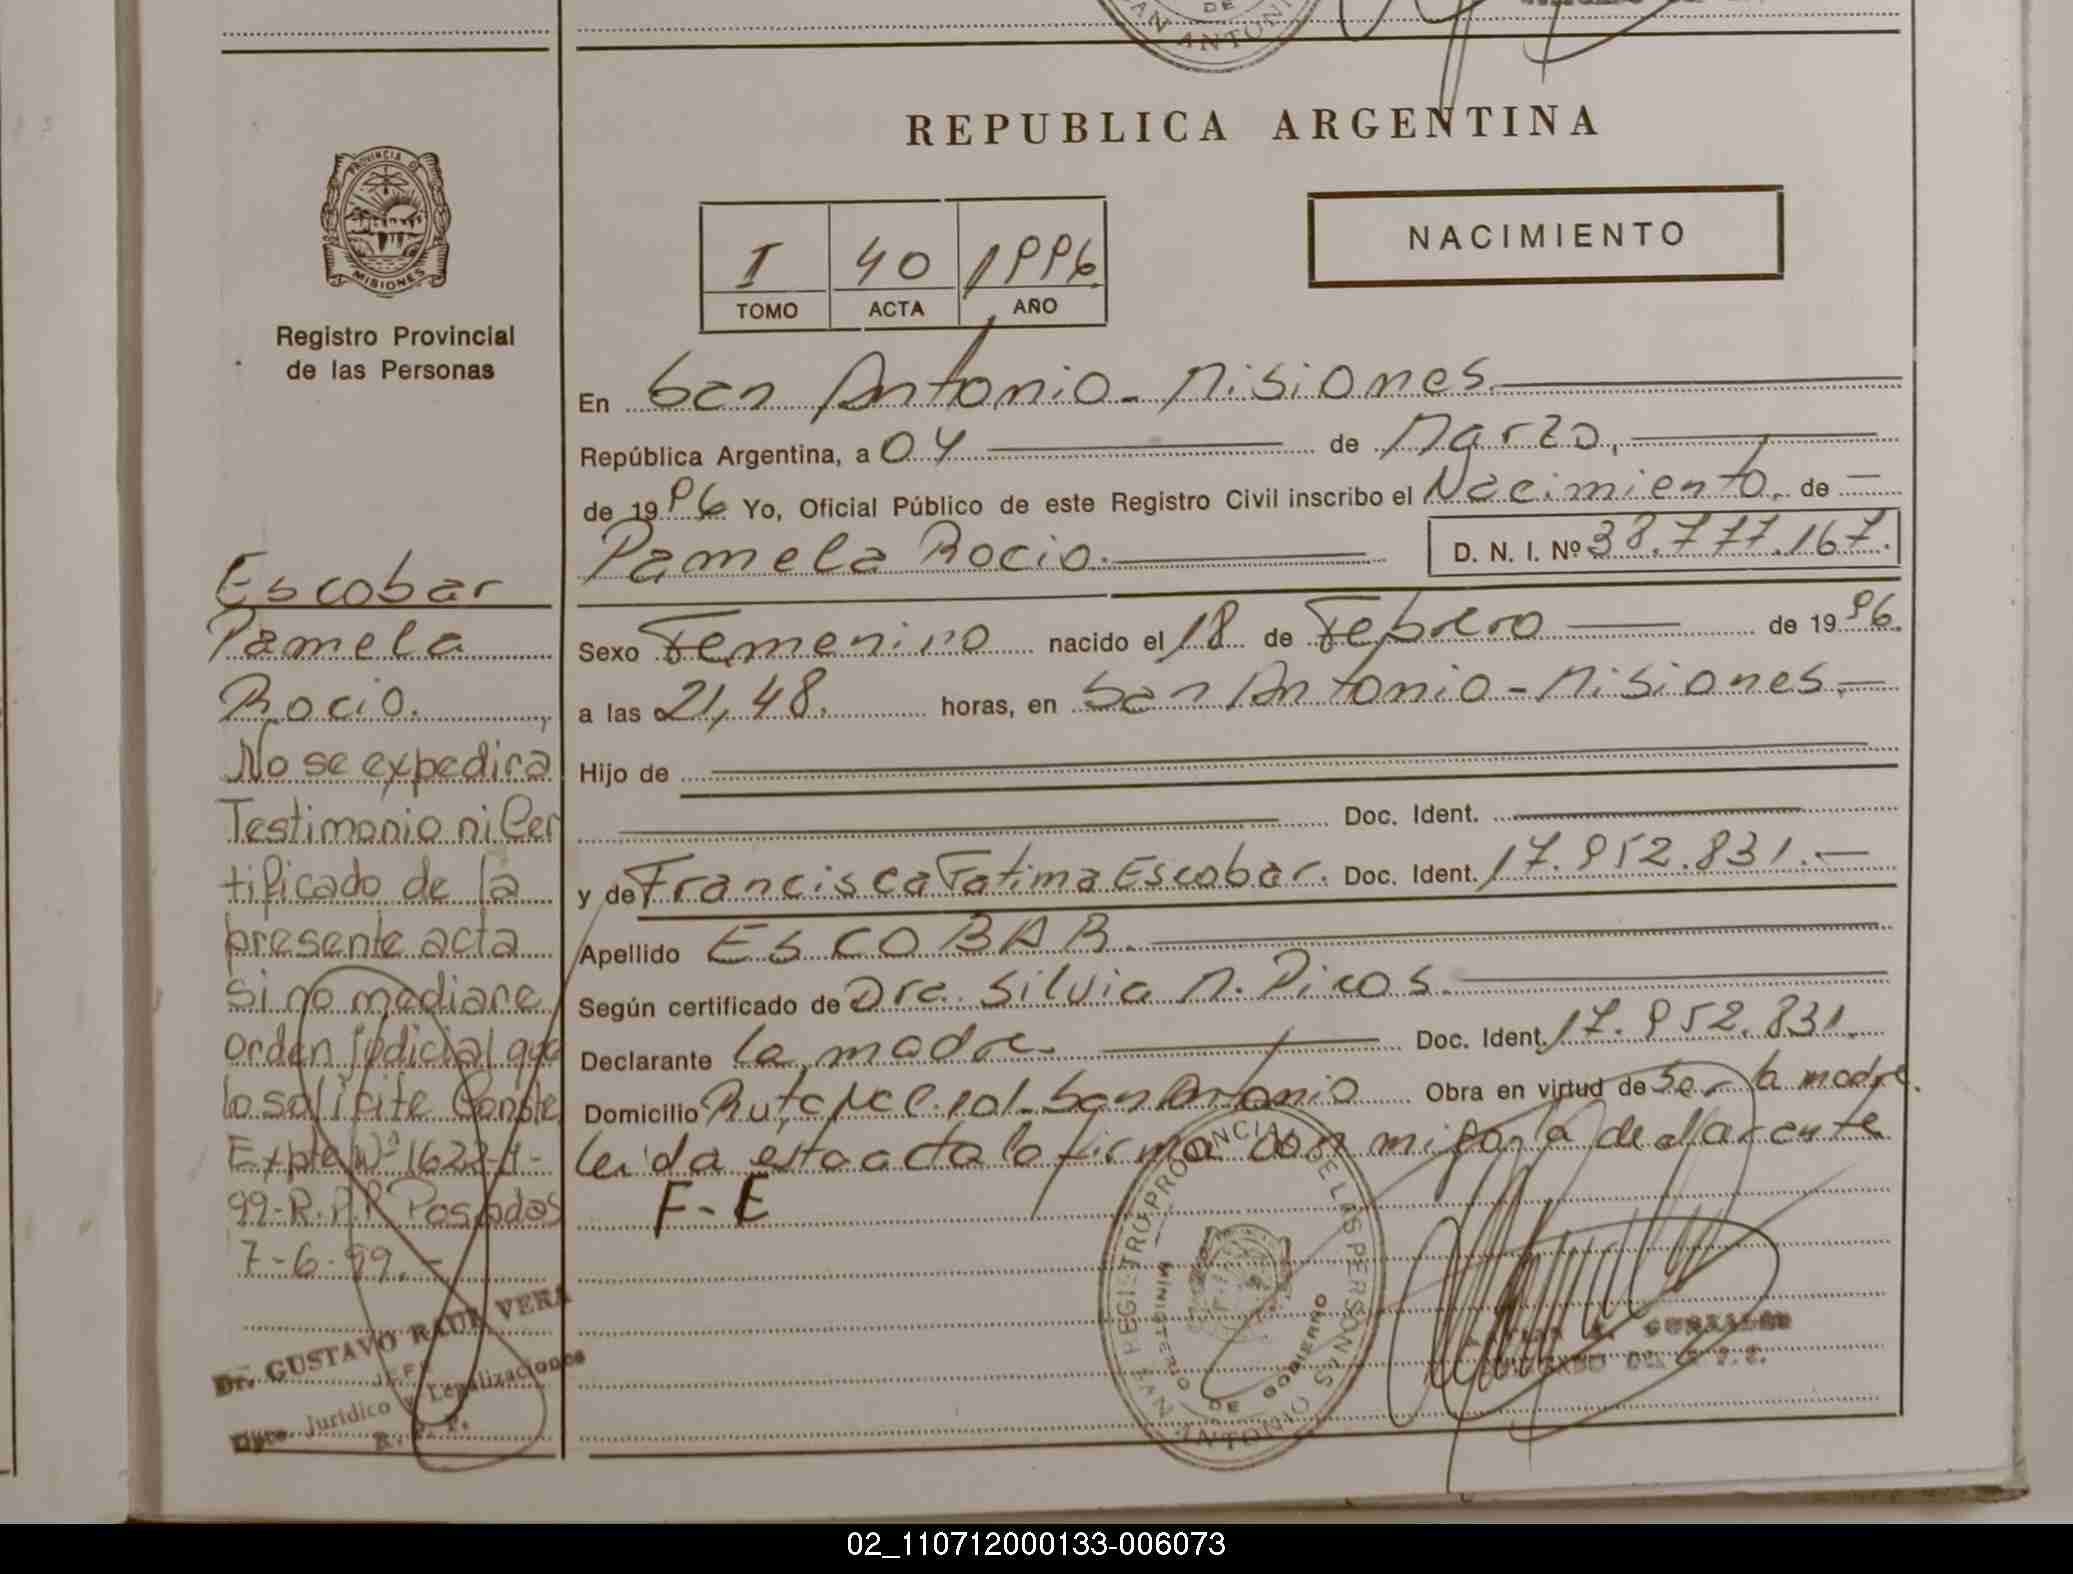 DE
SAN ANTONIO
REPUBLICA ARGENTINA
PROVINCIA DE
MISIONES
Registro Provincial
de las Personas
I 40 1996
TOMO ACTA AÑO
NACIMIENTO
En San Antonio - Misiones.
República Argentina, a 04 de Marzo,
de 1996 Yo, Oficial Público de este Registro Civil inscribo el Nacimiento, de
Pamela Rocio. D. N. I. Nº 38.777.167.
Sexo Femenino nacido el 18 de Febrero de 1996.
a las 21,48. horas, en San Antonio - Misiones.
Hijo de
Doc. Ident.
y de Francisca Fatima Escobar. Doc. Ident. 17.952.831.
Apellido ESCOBAR.
Según certificado de Dra. Silvia M. Picos.
Declarante La madre. Doc. Ident. 17.952.831.
Domicilio Ruta Nac. 101 - San Antonio Obra en virtud de Ser la madre.
leida esta acta la firma con migo la declarante
F-E
Escobar
Pamela
Rocio.
No se expedira
Testimonio ni Cer
tificado de la
presente acta
Si no mediare
orden Judicial que
lo solicite Conste
Expte Nº 1622-H-
99-R.P.P Posadas
7-6-99.-
Dr. GUSTAVO RAUL VERA
JEFE
Dpto. Jurídico y Legalizaciones
R. P. P.
REGISTRO PROVINCIAL DE LAS PERSONAS
MINISTERIO DE GOBIERNO
SAN ANTONIO
02_110712000133-006073